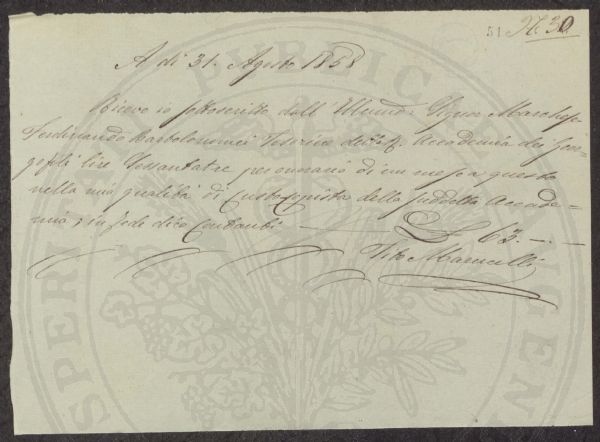 51 N. 30
A dì 31. Agosto 1858
Ricevo io sottoscritto dall' Illumo: Signor Marchese
Ferdinando Bartolommei Tesoriere dell' Accademia dei Geor-
gofili lire Sessantatre per onorario di un mese a questo
nella mia qualità di Custode della suddetta Accade=
mia; in fede dico Contanti
£ 63.-.-
Vito Marucelli
PERI PUBLICAE